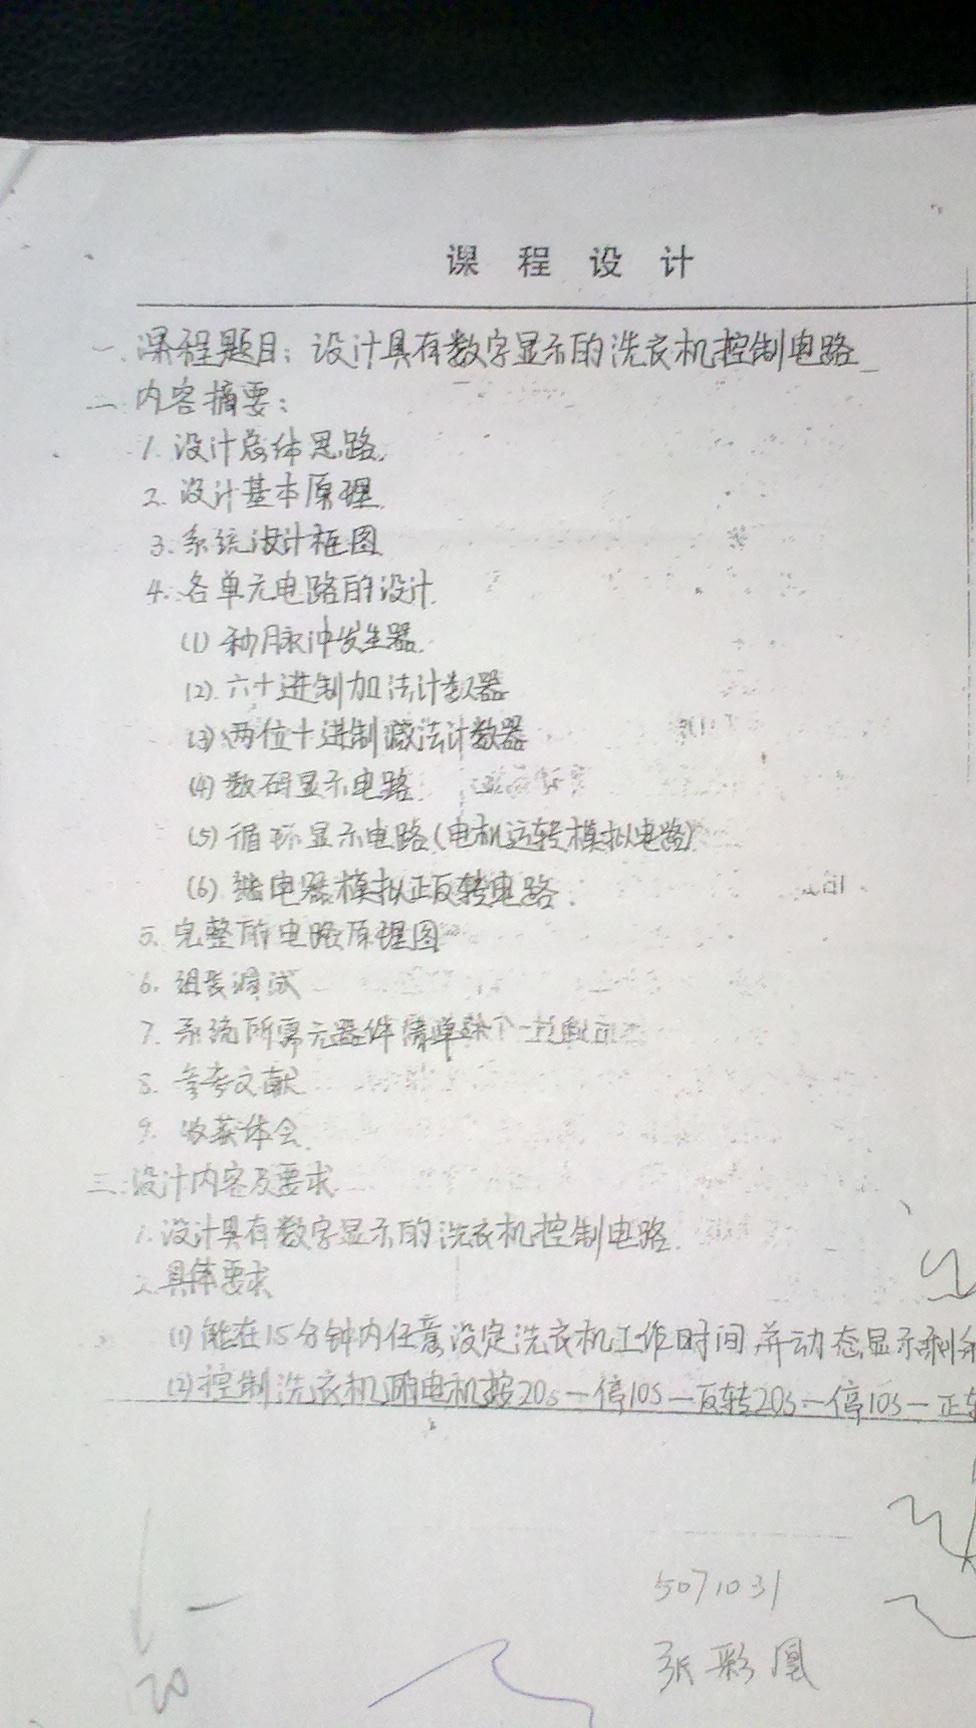 课程设计
一.课程题目：设计具有数字显示的洗衣机控制电路
二.内容摘要：
1.设计总体思路.
2.设计基本原理.
3.系统设计框图
4.各单元电路的设计.
(1)秒脉冲发生器.
(2).六十进制加法计数器
(3)两位十进制减法计数器
(4)数码显示电路.
(5)循环显示电路(电机运转模拟电路)
(6)继电器模拟正反转电路.
5.完整的电路原理图
6.组装调试
7.系统所需元器件清单
8.参考文献
9.收获体会.
三.设计内容及要求
1.设计具有数字显示的洗衣机控制电路.
2.具体要求
(1)能在15分钟内任意设定洗衣机工作时间,并动态显示剩余
(2)控制洗衣机的电机按20s—停10s—反转20s—停10s—正转
5071031
张彩凤
20